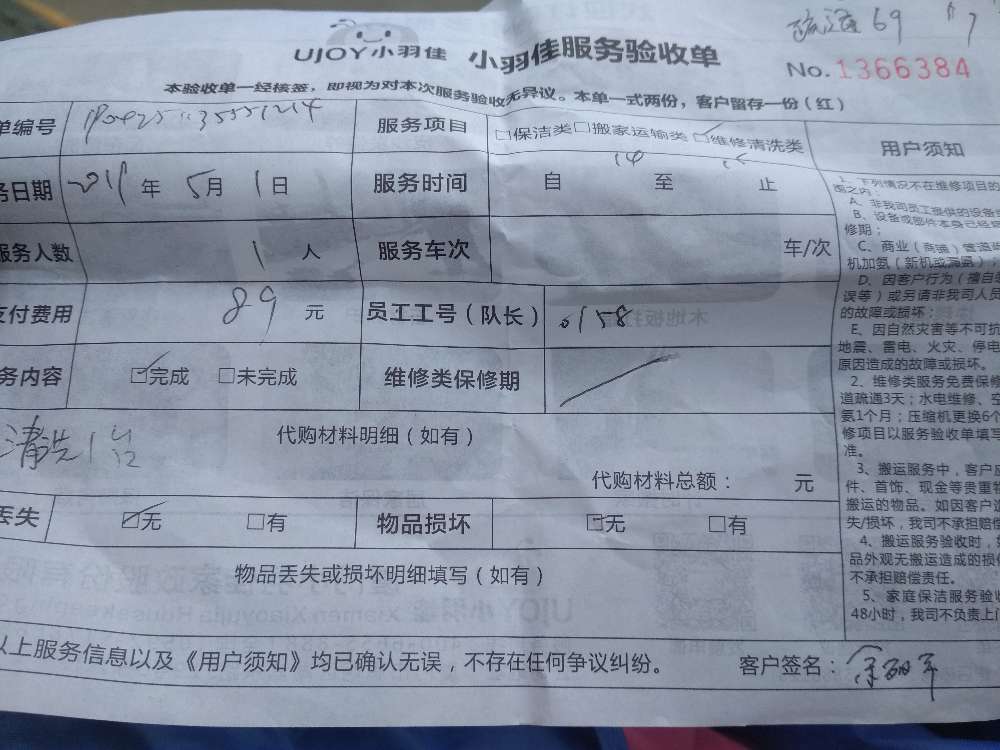 疏通69
UJOY小羽佳 小羽佳服务验收单
No.1366384
本验收单一经核签，即视为对本次服务验收无异议。本单一式两份，客户留存一份（红）
单编号 服务项目 □保洁类□搬家运输类□维修清洗类 用户须知
务日期 年 5月 1日 服务时间 自 至 止
服务人数 1 人 服务车次 车/次
支付费用 89 元 员工工号（队长） 0158
务内容 ☑完成 □未完成 维修类保修期
清洗1
代购材料明细（如有）
代购材料总额： 元
丢失 ☑无 □有 物品损坏 ☑无 □有
物品丢失或损坏明细填写（如有）
以上服务信息以及《用户须知》均已确认无误，不存在任何争议纠纷。 客户签名：
1、下列情况不在维修项目的
围之内：
A、非我司员工提供的设备
B、设备或部件本身已经
修期；
C、商业（商铺）管道
机加氨（新机或漏氟）；
D、因客户行为（擅自
误等）或另请非我司人员
的故障或损坏；
E、因自然灾害等不可抗
地震、雷电、火灾、停电
原因造成的故障或损坏。
2、维修类服务免费保修
道疏通3天；水电维修、空
氨1个月；压缩机更换6个
修项目以服务验收单填写
准。
3、搬运服务中，客户应
件、首饰、现金等贵重物
搬运的物品。如因客户
失/损坏，我司不承担赔偿
4、搬运服务验收时，
品外观无搬运造成的损
不承担赔偿责任。
5、家庭保洁服务验收
48小时，我司不负责上门